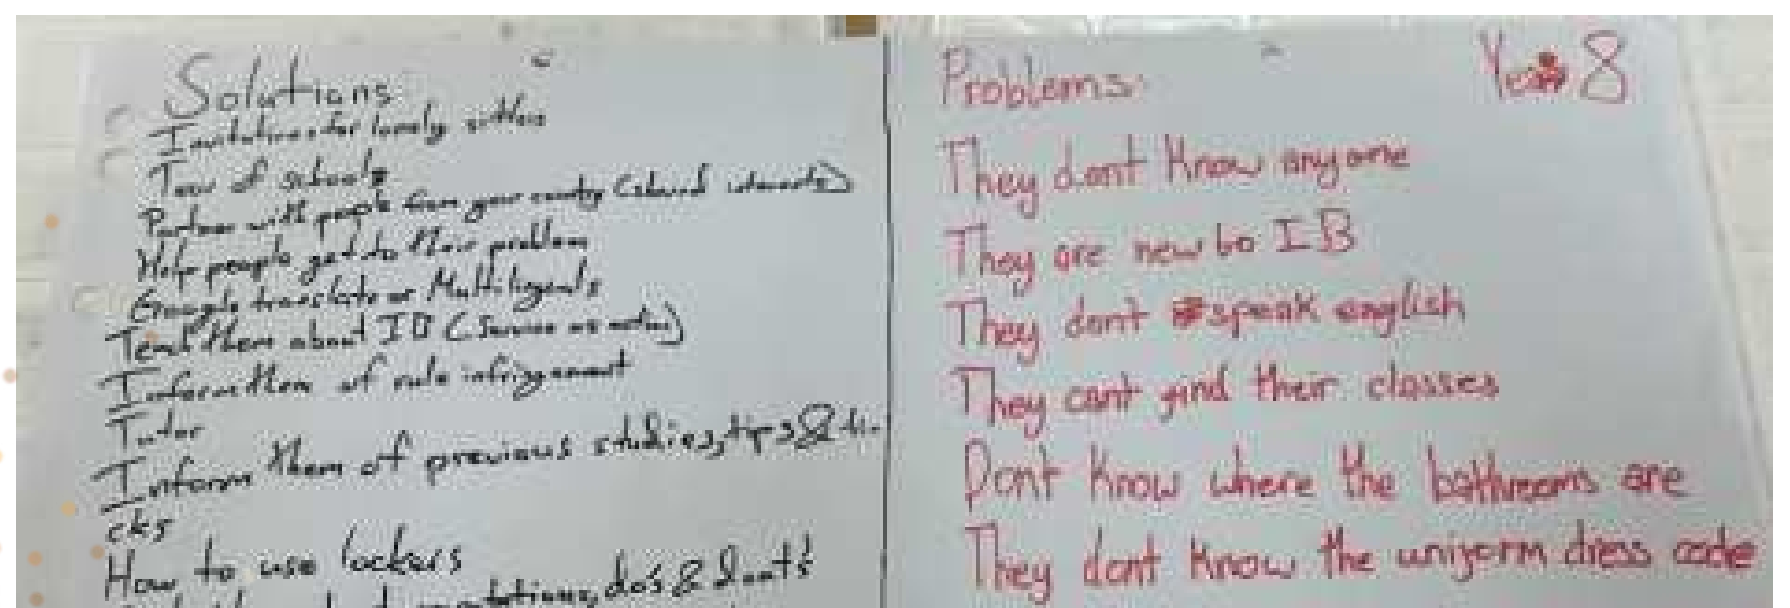 Solutions
Invitations for lonely sitters
Tour of schools
Partner with people from your country (shared interests)
Help people get to their problem
Google translate or Multiliguals
Teach them about IB (Service as action)
Inform them of rule infrigement
Tutor
Inform them of previous studies, tips & tri-
cks
How to use lockers
do's & dont's
Problems:
Year 8
They dont know anyone
They are new to IB
They dont speak english
They cant find their classes
Dont know where the bathrooms are
They dont know the uniform dress code